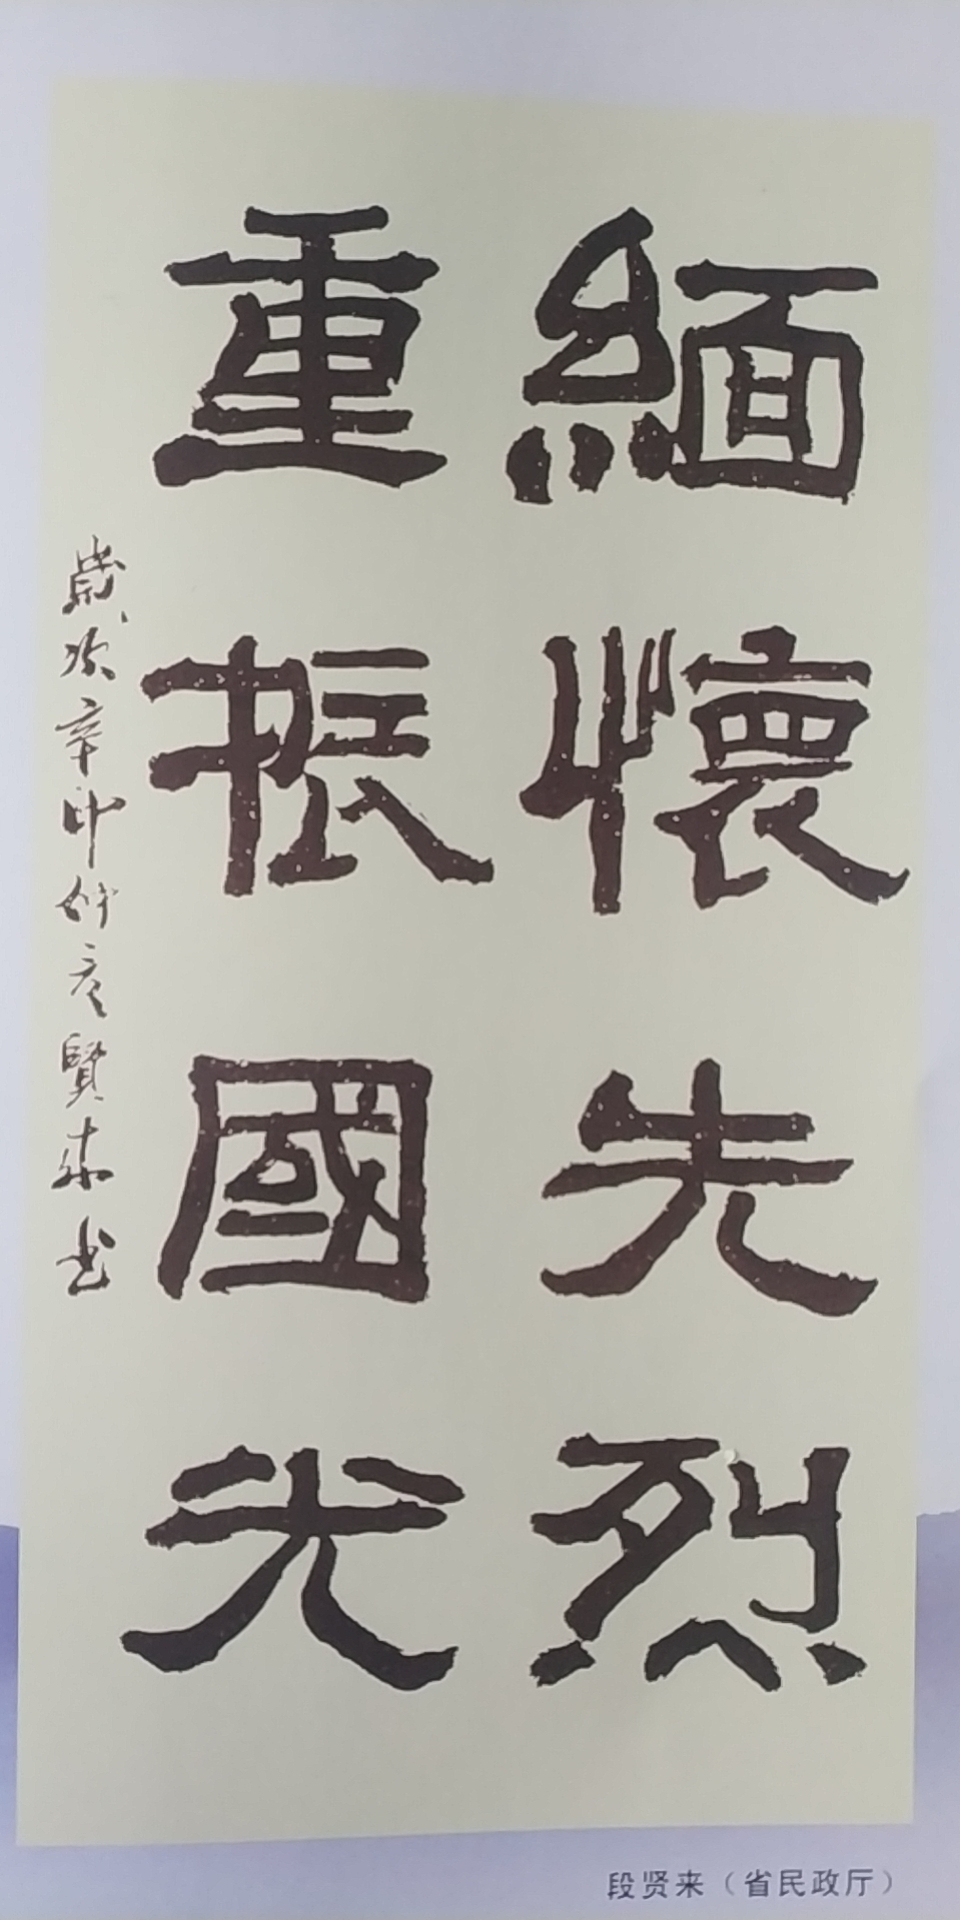 緬懷先烈
重振國光
歲次辛卯秋彦賢來书
段贤来（省民政厅）